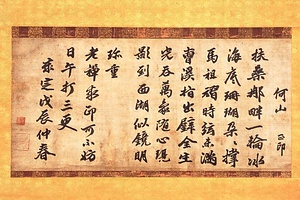 何山 印
扶桑那畔一輪冰
海底珊瑚朵〻撑
馬祖時猶未滿
曹溪指出鮮全生
光吞萬象随心現
影到西湖似鏡明
珎重
老禅求印可不妨
日午打三更
嘉定戊辰仲春